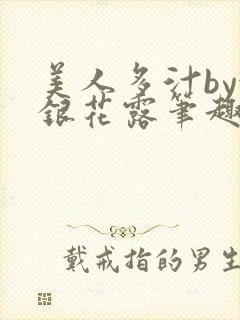 美人多汁by
銀花露筆趣
戴戒指的男生